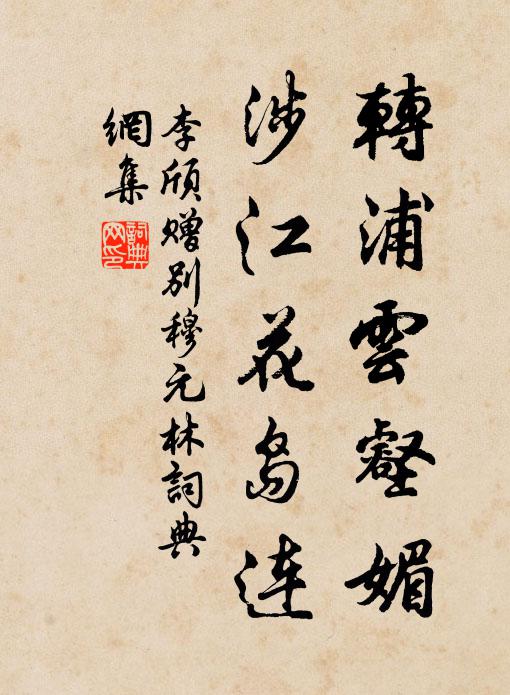 轉浦雲壑媚
涉江花島連
李頎贈別穆元林詞典
網集
詞典
网印